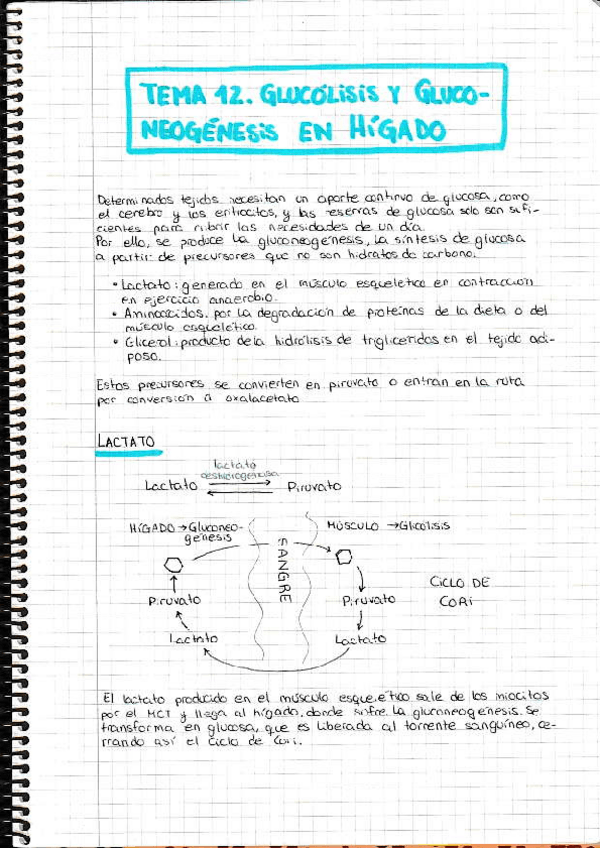 TEMA 12. GLUCÓLISIS Y GLUCO-
NEOGÉNESIS EN HÍGADO
Determinados tejidos necesitan un aporte continuo de glucosa, como
el cerebro y los eritrocitos, y las reservas de glucosa solo son sufi-
cientes para cubrir las necesidades de un día.
Por ello, se produce la gluconeogénesis, la síntesis de glucosa
a partir de precursores que no son hidratos de carbono.
• Lactato: generado en el músculo esquelético en contracción
en ejercicio anaerobio.
• Aminoácidos: por la degradación de proteínas de la dieta o del
músculo esquelético.
• Glicerol: producto de la hidrólisis de triglicéridos en el tejido adi-
poso.
Estos precursores se convierten en piruvato o entran en la ruta
por conversión a oxalacetato
LACTATO
lactato
deshidrogenasa
Lactato ⇌ Piruvato
HÍGADO → Gluconeo-
génesis
MÚSCULO → Glicólisis
SANGRE
CICLO DE
CORI
Piruvato
Piruvato
Lactato
Lactato
El lactato producido en el músculo esquelético sale de los miocitos
por el MCT y llega al hígado, donde sufre la gluconeogénesis. Se
transforma en glucosa, que es liberada al torrente sanguíneo, ce-
rrando así el ciclo de Cori.